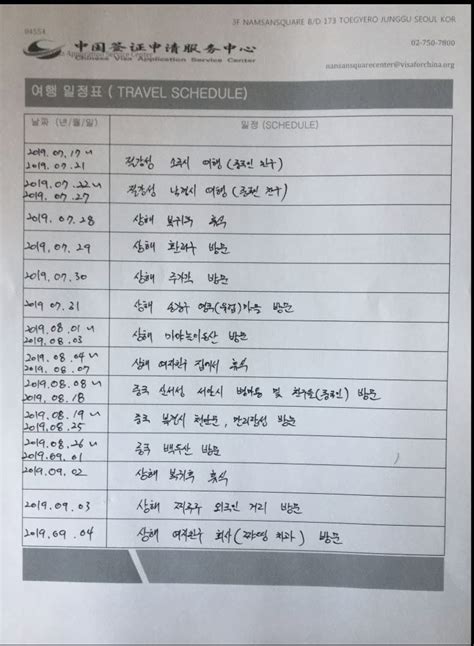 3F NAMSANSQUARE B/D 173 TOEGYERO JUNGGU SEOUL KOR
04554
02-750-7800
中国签证申请服务中心
Chinese Visa Application Service Center
namsansquarecenter@visaforchina.org
여행 일정표 ( TRAVEL SCHEDULE)
날짜 (년/월/일) 일정 (SCHEDULE)
2019. 07. 17 ~
2019. 07. 21 절강성 소주시 여행 (중국인 친구)
2019. 07. 22 ~
2019. 07. 27 절강성 남경시 여행 (중국인 친구)
2019. 07. 28 상해 복귀후 휴식
2019. 07. 29 상해 황파구 방문
2019. 07. 30 상해 주가각 방문
2019 07. 31 상해 송강구 영국(유럽)마을 방문
2019. 08. 01 ~
2019. 08. 03 상해 놀이동산 방문
2019. 08. 04 ~
2019. 08. 07 상해 여자친구 집에서 휴식
2019. 08. 08 ~
2019. 08. 18 중국 산서성 서안시 병마용 및 (중국인) 방문
2019. 08. 19 ~
2019. 08. 25 중국 북경시 천안문, 만리장성 방문
2019. 08. 26 ~
2019. 09. 01 중국 백두산 방문
2019. 09. 02 상해 복귀후 휴식
2019. 09. 03 상해 외국인 거리 방문
2019. 09. 04 상해 여자친구 회사 ( 치과) 방문